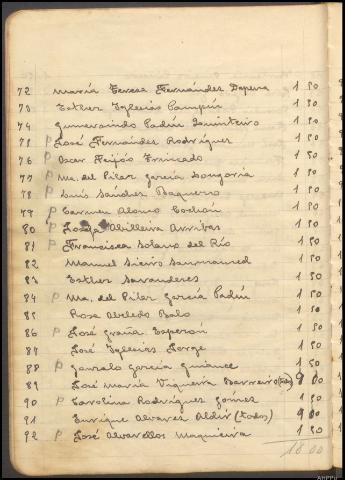 72 María Teresa Fernández Depena 1 50
73 Esther Iglesias Campín 1 50
74 Gumersindo Padín Quinteiro 1 50
75 P José Fernández Rodríguez 1 50
76 P Oscar Feijóo Trincado 1 50
77 P Ma. del Pilar García Longoria 1 50
78 P Luis Sández Baquero 1 50
79 P Carmen Alonso 1 50
80 P Josefa Abilleira Arribas 1 50
81 P Francisca Solano del Río 1 50
82 Manuel Sieiro 1 50
83 Esther 1 50
84 P Ma. del Pilar García Padín 1 50
85 Rosa Abeledo Balo 1 50
86 P José Graña Esperón 1 50
87 José Iglesias Jorge 1 50
88 P Gonzalo García 1 50
89 José María Viqueira Barreiro (todos) 9 00
90 P Carolina Rodríguez Gómez 1 50
91 Enrique Alvarez Aldir (todos) 9 00
92 P José Alvarellos Maquieira 1 50
18 00